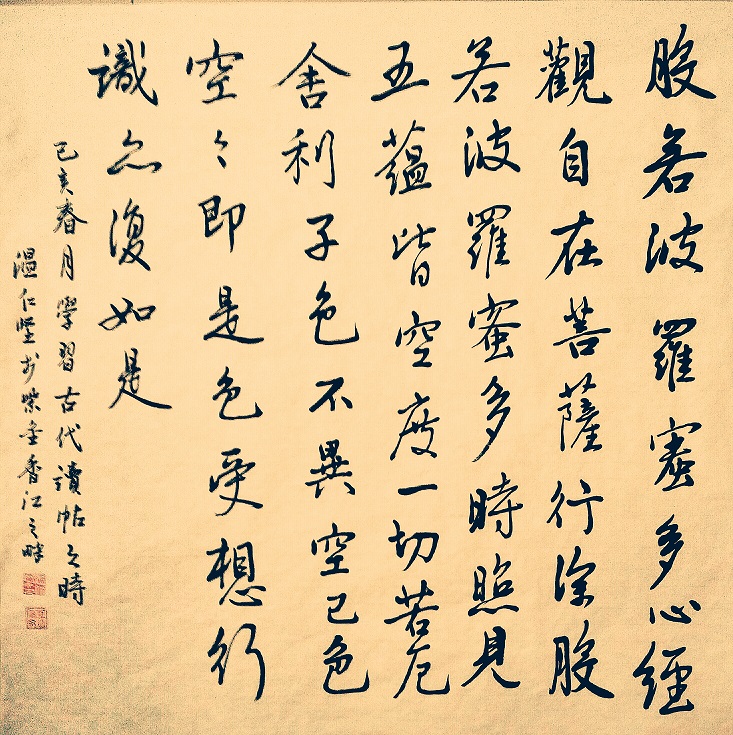 般若波羅蜜多心經
觀自在菩薩行深般
若波羅蜜多時照見
五蘊皆空度一切苦厄
舍利子色不異空已色
空々即是色受想行
識亦復如是
己亥春月學習古代讀帖之時
温仁坚於紫金香江之畔